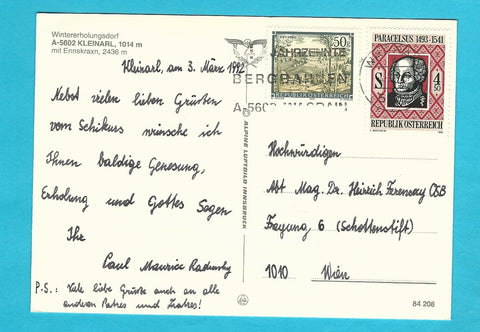 Wintererholungsdorf
A-5602 KLEINARL, 1014 m
mit Ennskraxn, 2436 m
Kleinarl, am 3. März 1992
Nebst vielen lieben Grüßen
vom Schikurs wünsche ich
Ihnen baldige Genesung,
Erholung und Gottes Segen
Ihr
Paul Maurice Radinsky
P.S.: Viele liebe Grüße auch an alle
anderen Patres und Fratres!
ALPINE LUFTBILD INNSBRUCK
JAHRZEHNTE
BERGBAHNEN
A-5602 WAGRAIN
50
REPUBLIK ÖSTERREICH
PARACELSUS 1493-1541
S 4 50
REPUBLIK ÖSTERREICH
Hochwürdigen
Abt Mag. Dr. Heinrich Ferenczy OSB
Freyung, 6 (Schottenstift)
1010 Wien
84 208